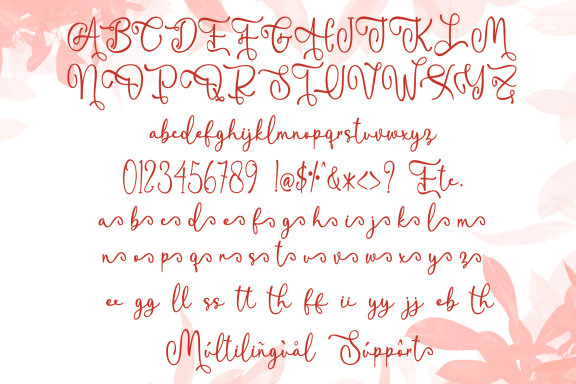 A B C D E F G H I J K L M
N O P Q R S T U V W X Y Z
abcdefghijklmnopqrstuvwxyz
0123456789 !@$%^&*<>? Etc.
a b c d e f g h i j k l m
n o p q r s t u v w x y z
ee gg ll ss tt th ff ii yy jj eb th
Múltilingùàl Súppôrt